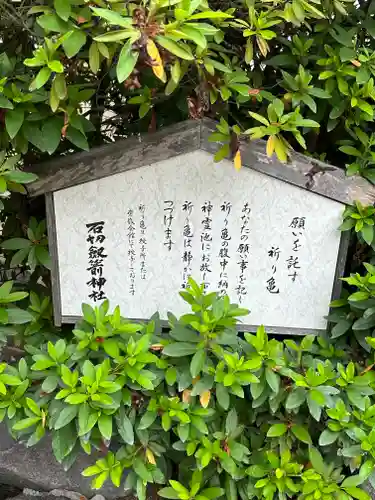 願いを託す
祈り亀
あなたの願い事を
祈り亀の腹中に納め
神霊池にお放し
祈り亀は静か
つづけます
祈り亀は 授与所または
会館にて授与しております
石切劔箭神社